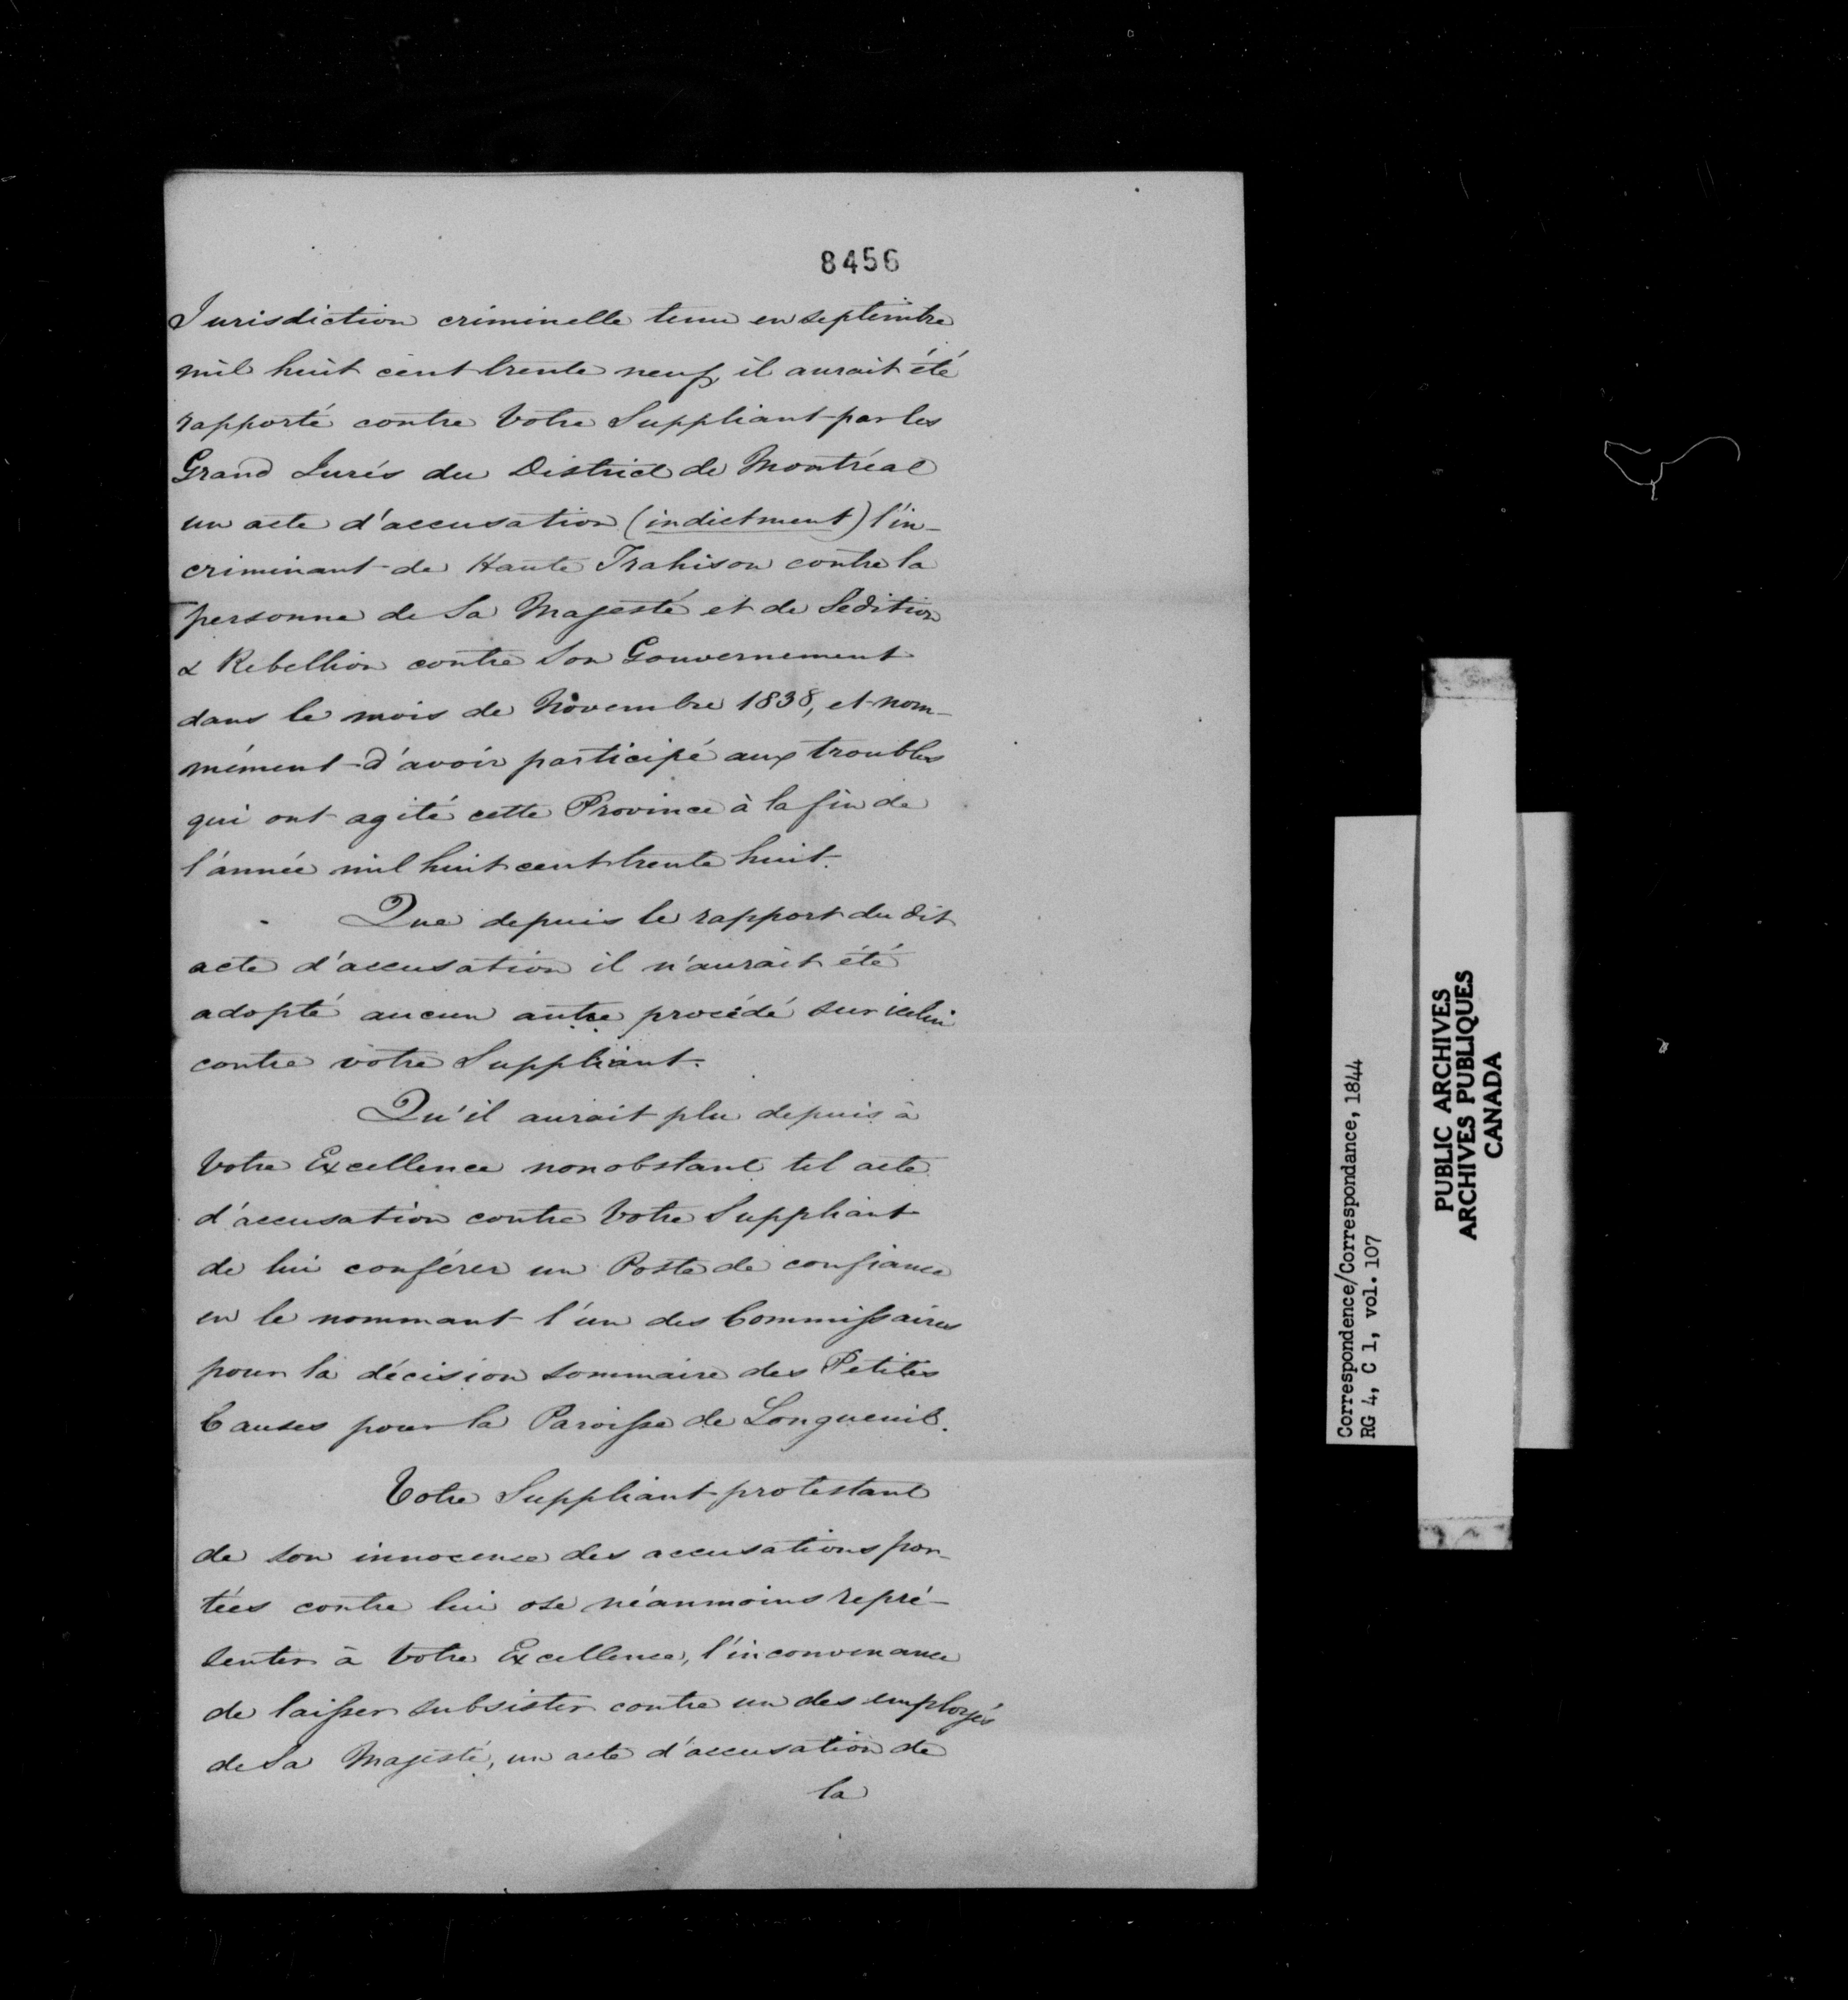 8456
Jurisdiction criminelle tenu en septembre
mil huit cent trente neuf, il aurait été
rapporté contre Votre Suppliant par les
Grand Jurés du District de Montréal
un acte d'accusation (indictment) l'in-
criminant de Haute Trahison contre la
personne de Sa Majesté et de Sedition
& Rebellion contre Son Gouvernement
dans le mois de Novembre 1838, et nom-
mément d'avoir participé aux troubles
qui ont agité cette Province à la fin de
l'année mil huit cent trente huit.
Que depuis le rapport du dit
acte d'accusation il n'aurait été
adopté aucun autre procédé sur icelui
contre votre Suppliant.
Qu'il aurait plu depuis à
Votre Excellence nonobstant tel acte
d'accusation contre Votre Suppliant
de lui conférer un Poste de confiance
en le nommant l'un des Commissaires
pour la décision sommaire des Petites
Causes pour la Paroisse de Longueuil.
Votre Suppliant protestant
de son innocence des accusations por-
tées contre lui ose néanmoins repré-
senter à Votre Excellence, l'inconvenance
de laisser subsister contre un des employés
de Sa Majesté, un acte d'accusation de
la
Correspondence/Correspondance, 1844
RG 4, C 1, vol. 107
PUBLIC ARCHIVES
ARCHIVES PUBLIQUES
CANADA